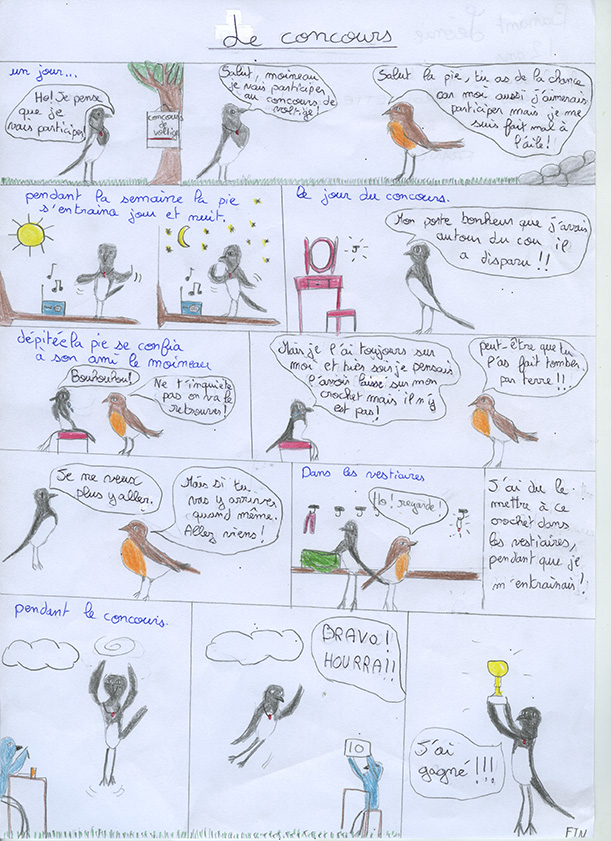 Le concours
un jour...
Ho! Je pense
que je
vais participer!
concours
de
voltige
Salut, moineau
je vais participer
au concours de
voltige!
Salut la pie, tu as de la chance
car moi aussi j'aimerais
participer mais je me
suis fait mal à
l'aile!
pendant la semaine la pie
s'entraina jour et nuit.
le jour du concours.
Mon porte bonheur que j'avais
autour du cou il
a disparu!!
dépitée la pie se confia
a son ami le moineau
Bouhouhou!
Ne t'inquiète
pas on va le
retrouver!
Mais je l'ai toujours sur
moi et hier soir je pensais
l'avoir laissé sur mon
crochet mais il n'y
est pas!
peut-être que tu
l'as fait tomber
par terre!!
Je ne veux
plus y aller.
Mais si tu
vas y arriver
quand même.
Allez viens!
Dans les vestiaires
Ho! regarde!
J'ai du le
mettre à ce
crochet dans
les vestiaires,
pendant que je
m'entrainais!
pendant le concours.
BRAVO!
HOURRA!!
10
J'ai
gagné!!!
FIN